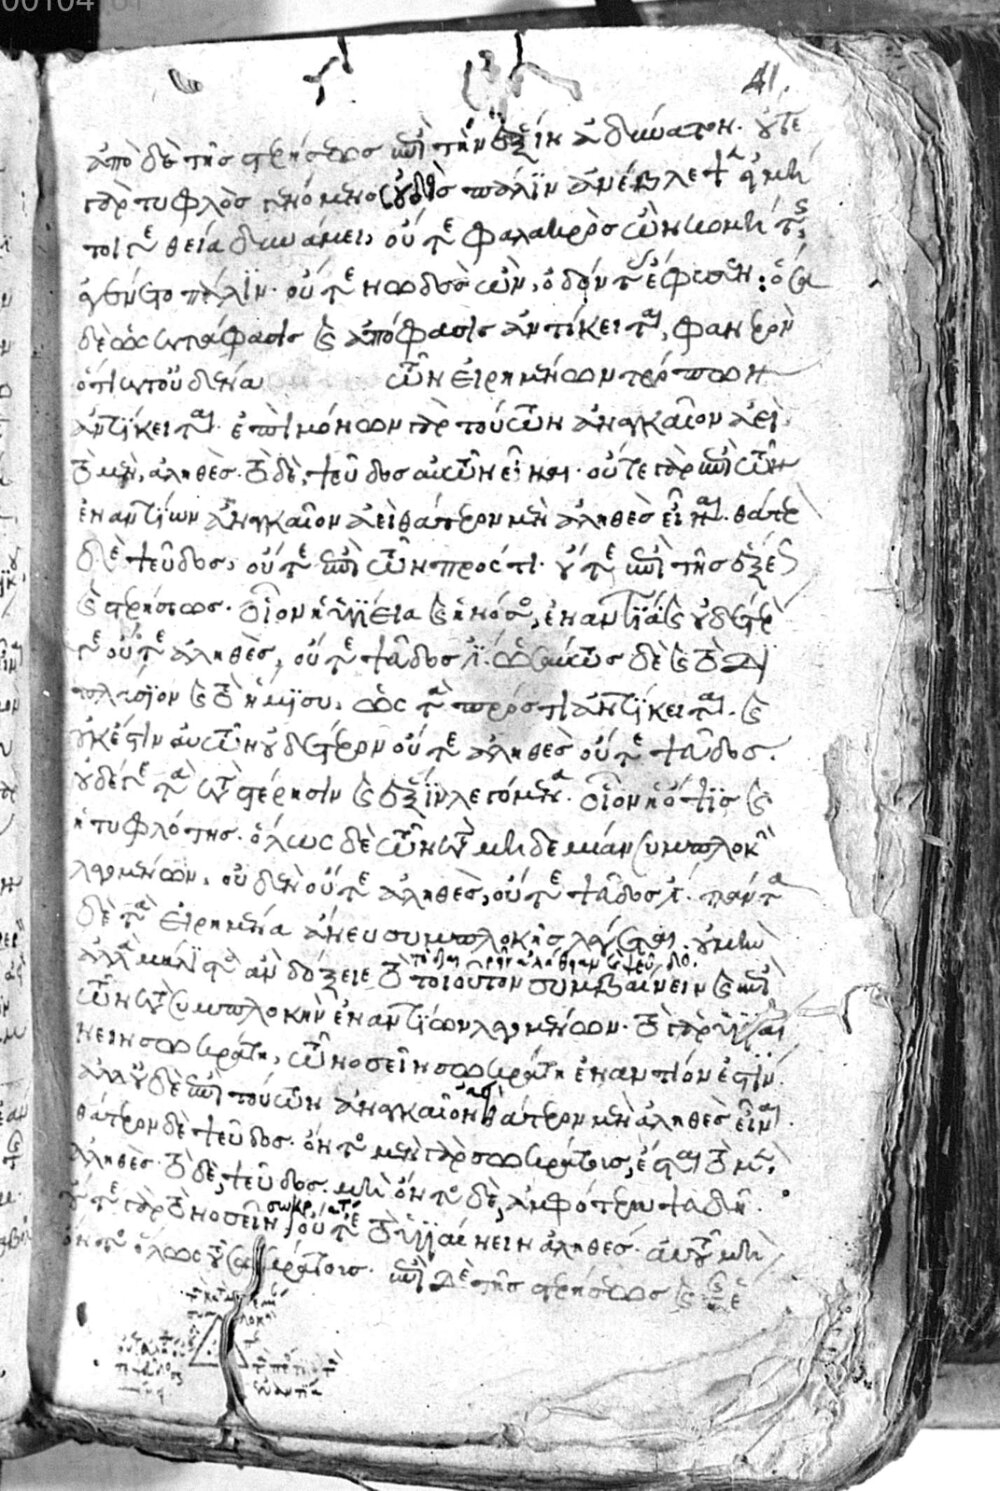 41
ἀπὸ δὲ τῆς στερήσεως ἐπὶ τὴν ἕξιν ἀδύνατον. οὔτε
γὰρ τυφλὸς γενόμενος οὐδεὶς πάλιν ἀνέβλεψεν
οὔτε φαλακρὸς ὢν κομήτης
ἐγένετο πάλιν. οὔτε νωδὸς ὢν, ὀδόντας ἔφυσεν: ὅσα
δὲ ὡς κατάφασις καὶ ἀπόφασις ἀντίκειται, φανερὸν
ὅτι κατ' οὐδένα τῶν εἰρημένων τρόπων
ἀντίκειται. ἐπὶ μόνων γὰρ τούτων ἀναγκαῖον ἀεὶ
τὸ μὲν, ἀληθὲς. τὸ δὲ, ψεῦδος αὐτῶν εἶναι. οὔτε γὰρ ἐπὶ τῶν
ἐναντίων ἀναγκαῖον ἀεὶ θάτερον μὲν ἀληθὲς εἶναι. θάτερον
δὲ ψεῦδος, οὔτε ἐπὶ τῶν πρός τι. οὔτε ἐπὶ τῆς ἕξεως
καὶ στερήσεως. οἷον ἡ ὑγίεια καὶ ἡ νόσος, ἐναντία καὶ οὐδέτερόν
γε οὔτε ἀληθὲς, οὔτε ψεῦδός ἐστι. ὡσαύτως δὲ καὶ τὸ δι
πλάσιον καὶ τὸ ἥμισυ, ὡς τὰ πρός τι ἀντίκειται. καὶ
οὐκ ἔστιν αὐτῶν οὐδέτερον οὔτε ἀληθὲς οὔτε ψεῦδος.
οὐδέ γε τὰ κατὰ στέρησιν καὶ ἕξιν λεγόμενα. οἷον ἡ ὄψις καὶ
ἡ τυφλότης. ὅλως δὲ τῶν κατὰ μηδεμίαν συμπλοκὴν
λεγομένων, οὐδὲν οὔτε ἀληθὲς, οὔτε ψεῦδός ἐστι. πάντα
δὲ τὰ εἰρημένα ἄνευ συμπλοκῆς λέγεται. οὐ μὴν
ἀλλὰ μάλιστα ἂν δόξειε τὸ τοιοῦτον συμβαίνειν καὶ ἐπὶ
τῶν κατὰ συμπλοκὴν ἐναντίων λεγομένων. τὸ γὰρ ὑγιαί
νειν σωκράτη, τῶ νοσεῖν σωκράτη ἐναντίον ἐστίν.
ἀλλ' οὐδὲ ἐπὶ τούτων ἀναγκαῖον ἀεὶ θάτερον μὲν ἀληθὲς εἶναι.
θάτερον δὲ ψεῦδος. ὄντος μὲν γὰρ σωκράτους, ἔσται τὸ μὲν,
ἀληθὲς. τὸ δὲ, ψεῦδος. μὴ ὄντος δὲ, ἀμφότερα ψευδῆ.
οὔτε γὰρ τὸ νοσεῖν σωκράτη, οὔτε τὸ ὑγιαίνειν ἀληθές. αὐτοῦ μὴ
ὄντος ὅλως τοῦ σωκράτους. ἐπὶ δὲ τῆς στερήσεως καὶ τῆς ἕ